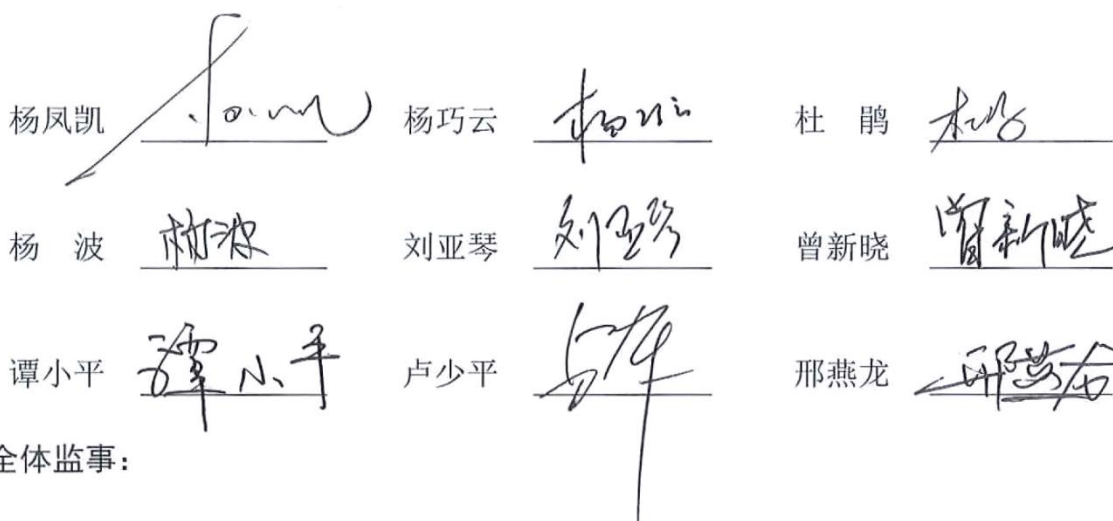 杨凤凯 杨巧云 杨巧云 杜 鹃 杜鹃
杨 波 杨波 刘亚琴 刘亚琴 曾新晓 曾新晓
谭小平 谭小平 卢少平 邢燕龙 邢燕龙
全体监事：